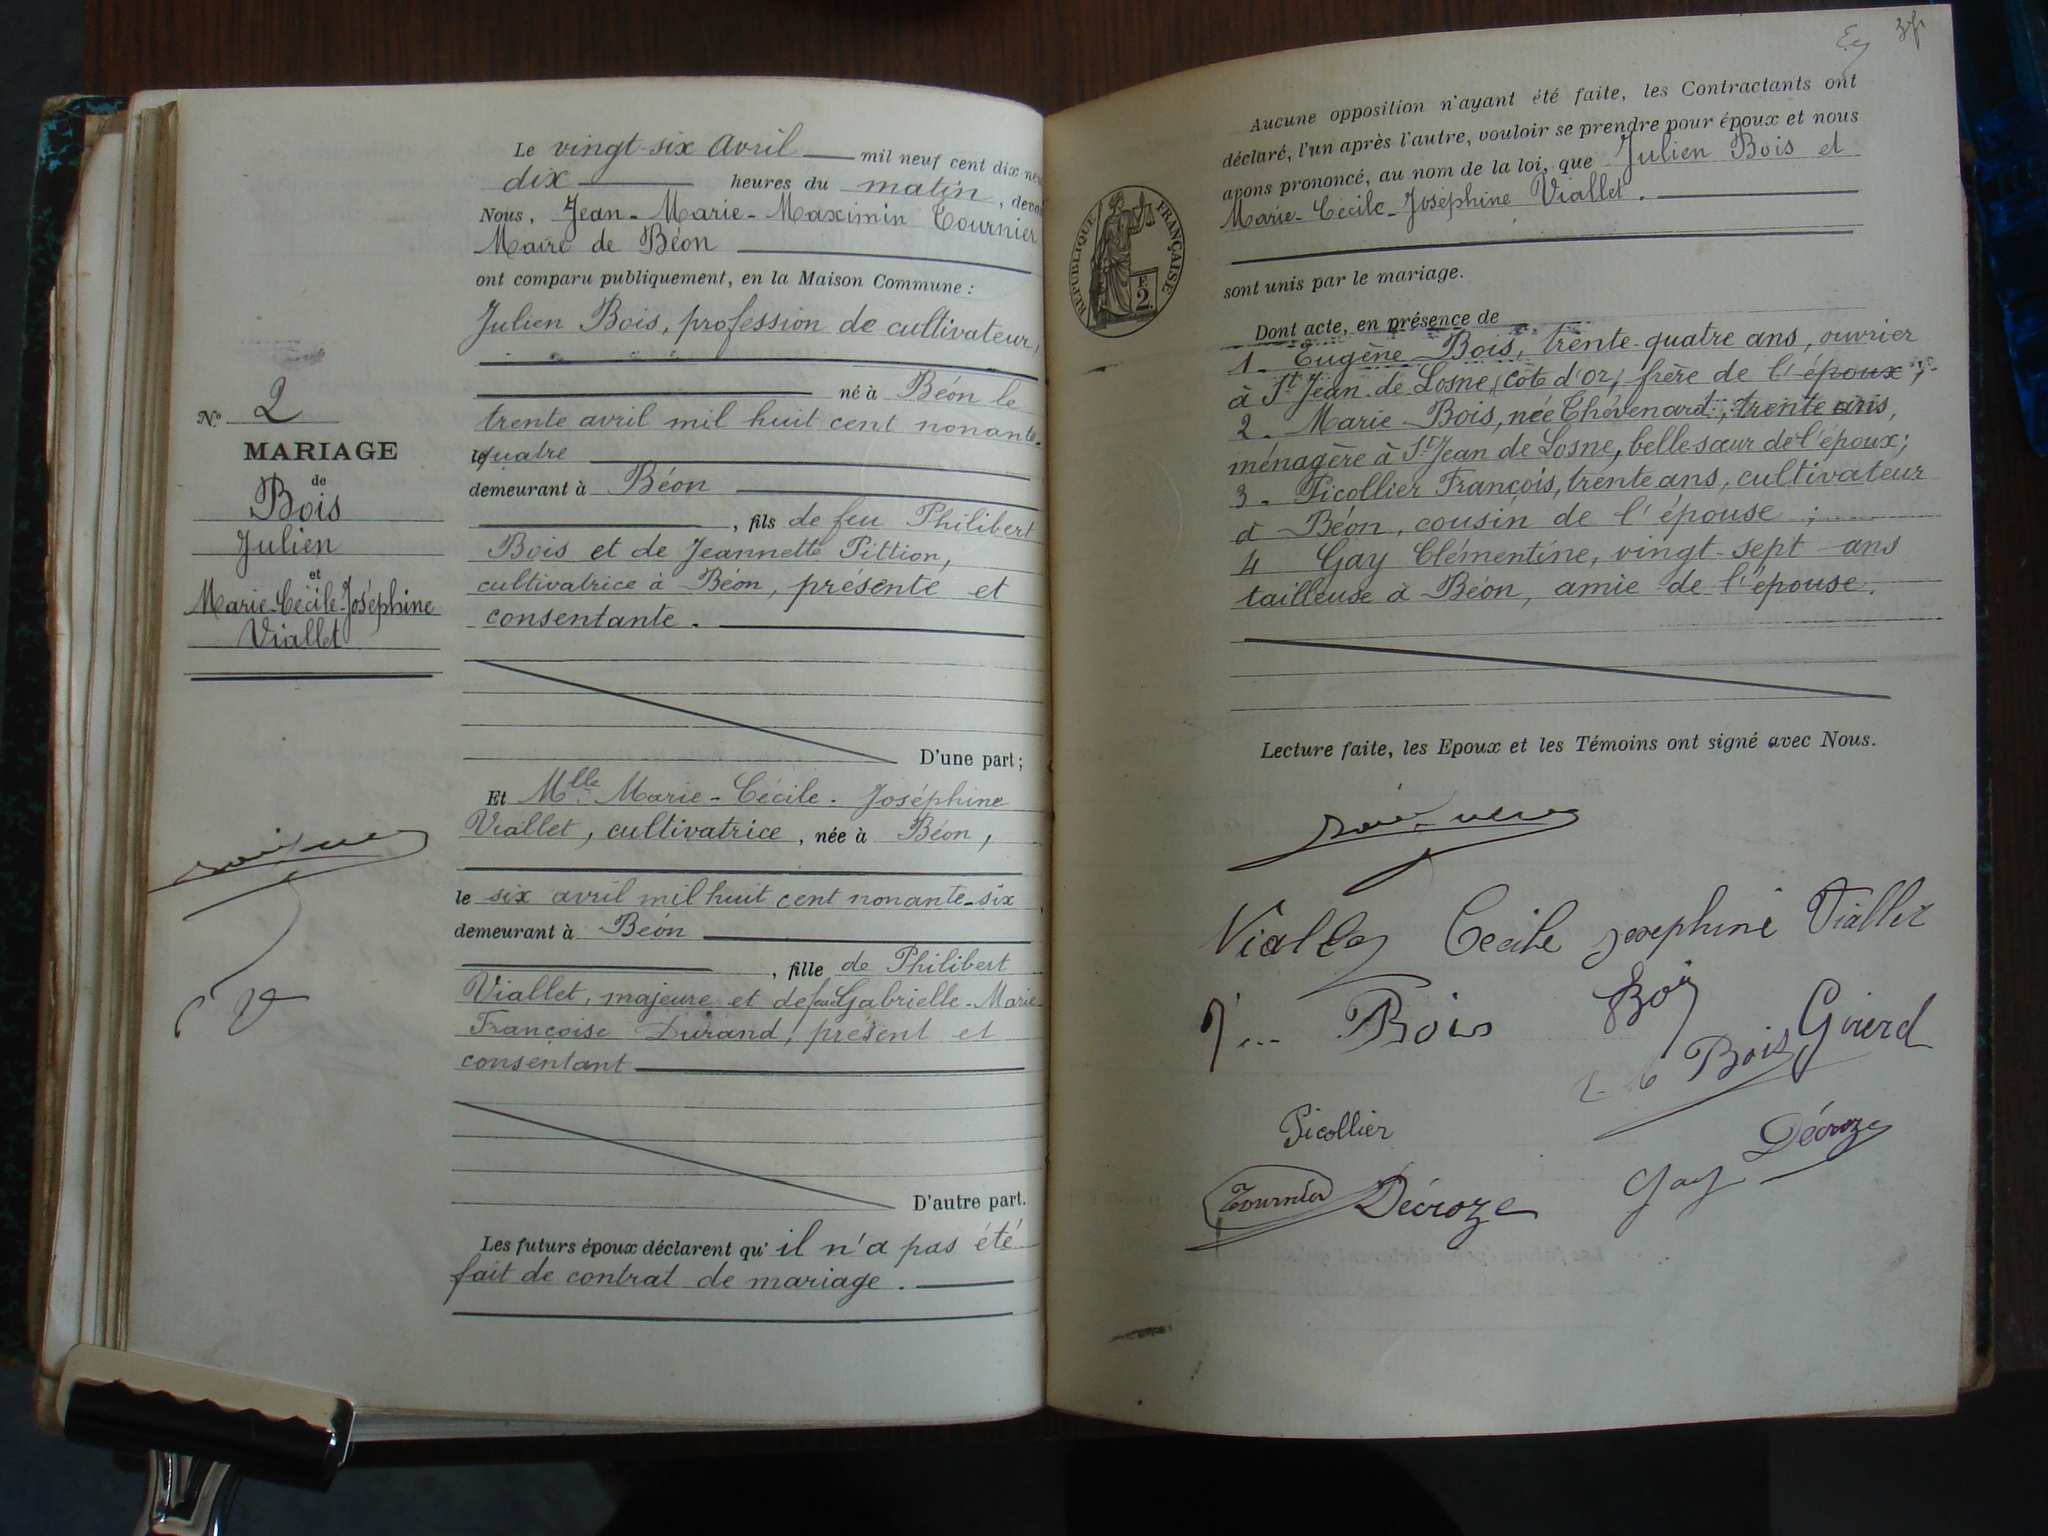 N° 2
MARIAGE
de
Bois
Julien
et
Marie-Cécile-Joséphine
Viallet
Le vingt-six Avril mil neuf cent dix ne
dix heures du matin, deva
Nous, Jean-Marie-Maximin Tournier
Maire de Béon
ont comparu publiquement, en la Maison Commune :
Julien Bois, profession de cultivateur,
né à Béon le
trente avril mil huit cent nonante-
le quatre
demeurant à Béon
, fils de feu Philibert
Bois et de Jeannette Pittion,
cultivatrice à Béon, présente et
consentante.
D'une part ;
Et Mlle Marie-Cécile-Joséphine
Viallet, cultivatrice, née à Béon,
le six avril mil huit cent nonante-six
demeurant à Béon
, fille de Philibert
Viallet, majeure et de feue Gabrielle-Marie-
Françoise Durand, présent et
consentant
D'autre part.
Les futurs époux déclarent qu'il n'a pas été
fait de contrat de mariage.
Aucune opposition n'ayant été faite, les Contractants ont
déclaré, l'un après l'autre, vouloir se prendre pour époux et nous
avons prononcé, au nom de la loi, que Julien Bois et
Marie-Cécile-Joséphine Viallet.
RÉPUBLIQUE FRANÇAISE
2
sont unis par le mariage.
Dont acte, en présence de
1. Eugène Bois, trente-quatre ans, ouvrier
à St Jean de Losne (Côte d'Or) frère de l'époux ;
2. Marie Bois, née Thévenard, trente ans,
ménagère à St Jean de Losne, belle-sœur de l'époux ;
3. Picollier François, trente ans, cultivateur
à Béon, cousin de l'épouse ;
4 Gay Clémentine, vingt-sept ans
tailleuse à Béon, amie de l'épouse.
Lecture faite, les Epoux et les Témoins ont signé avec Nous.
Viallet Cecile Josephine Viallet
Bois Bois
Bois Girerd
Picollier Décroze
Tournier Décroze Gay